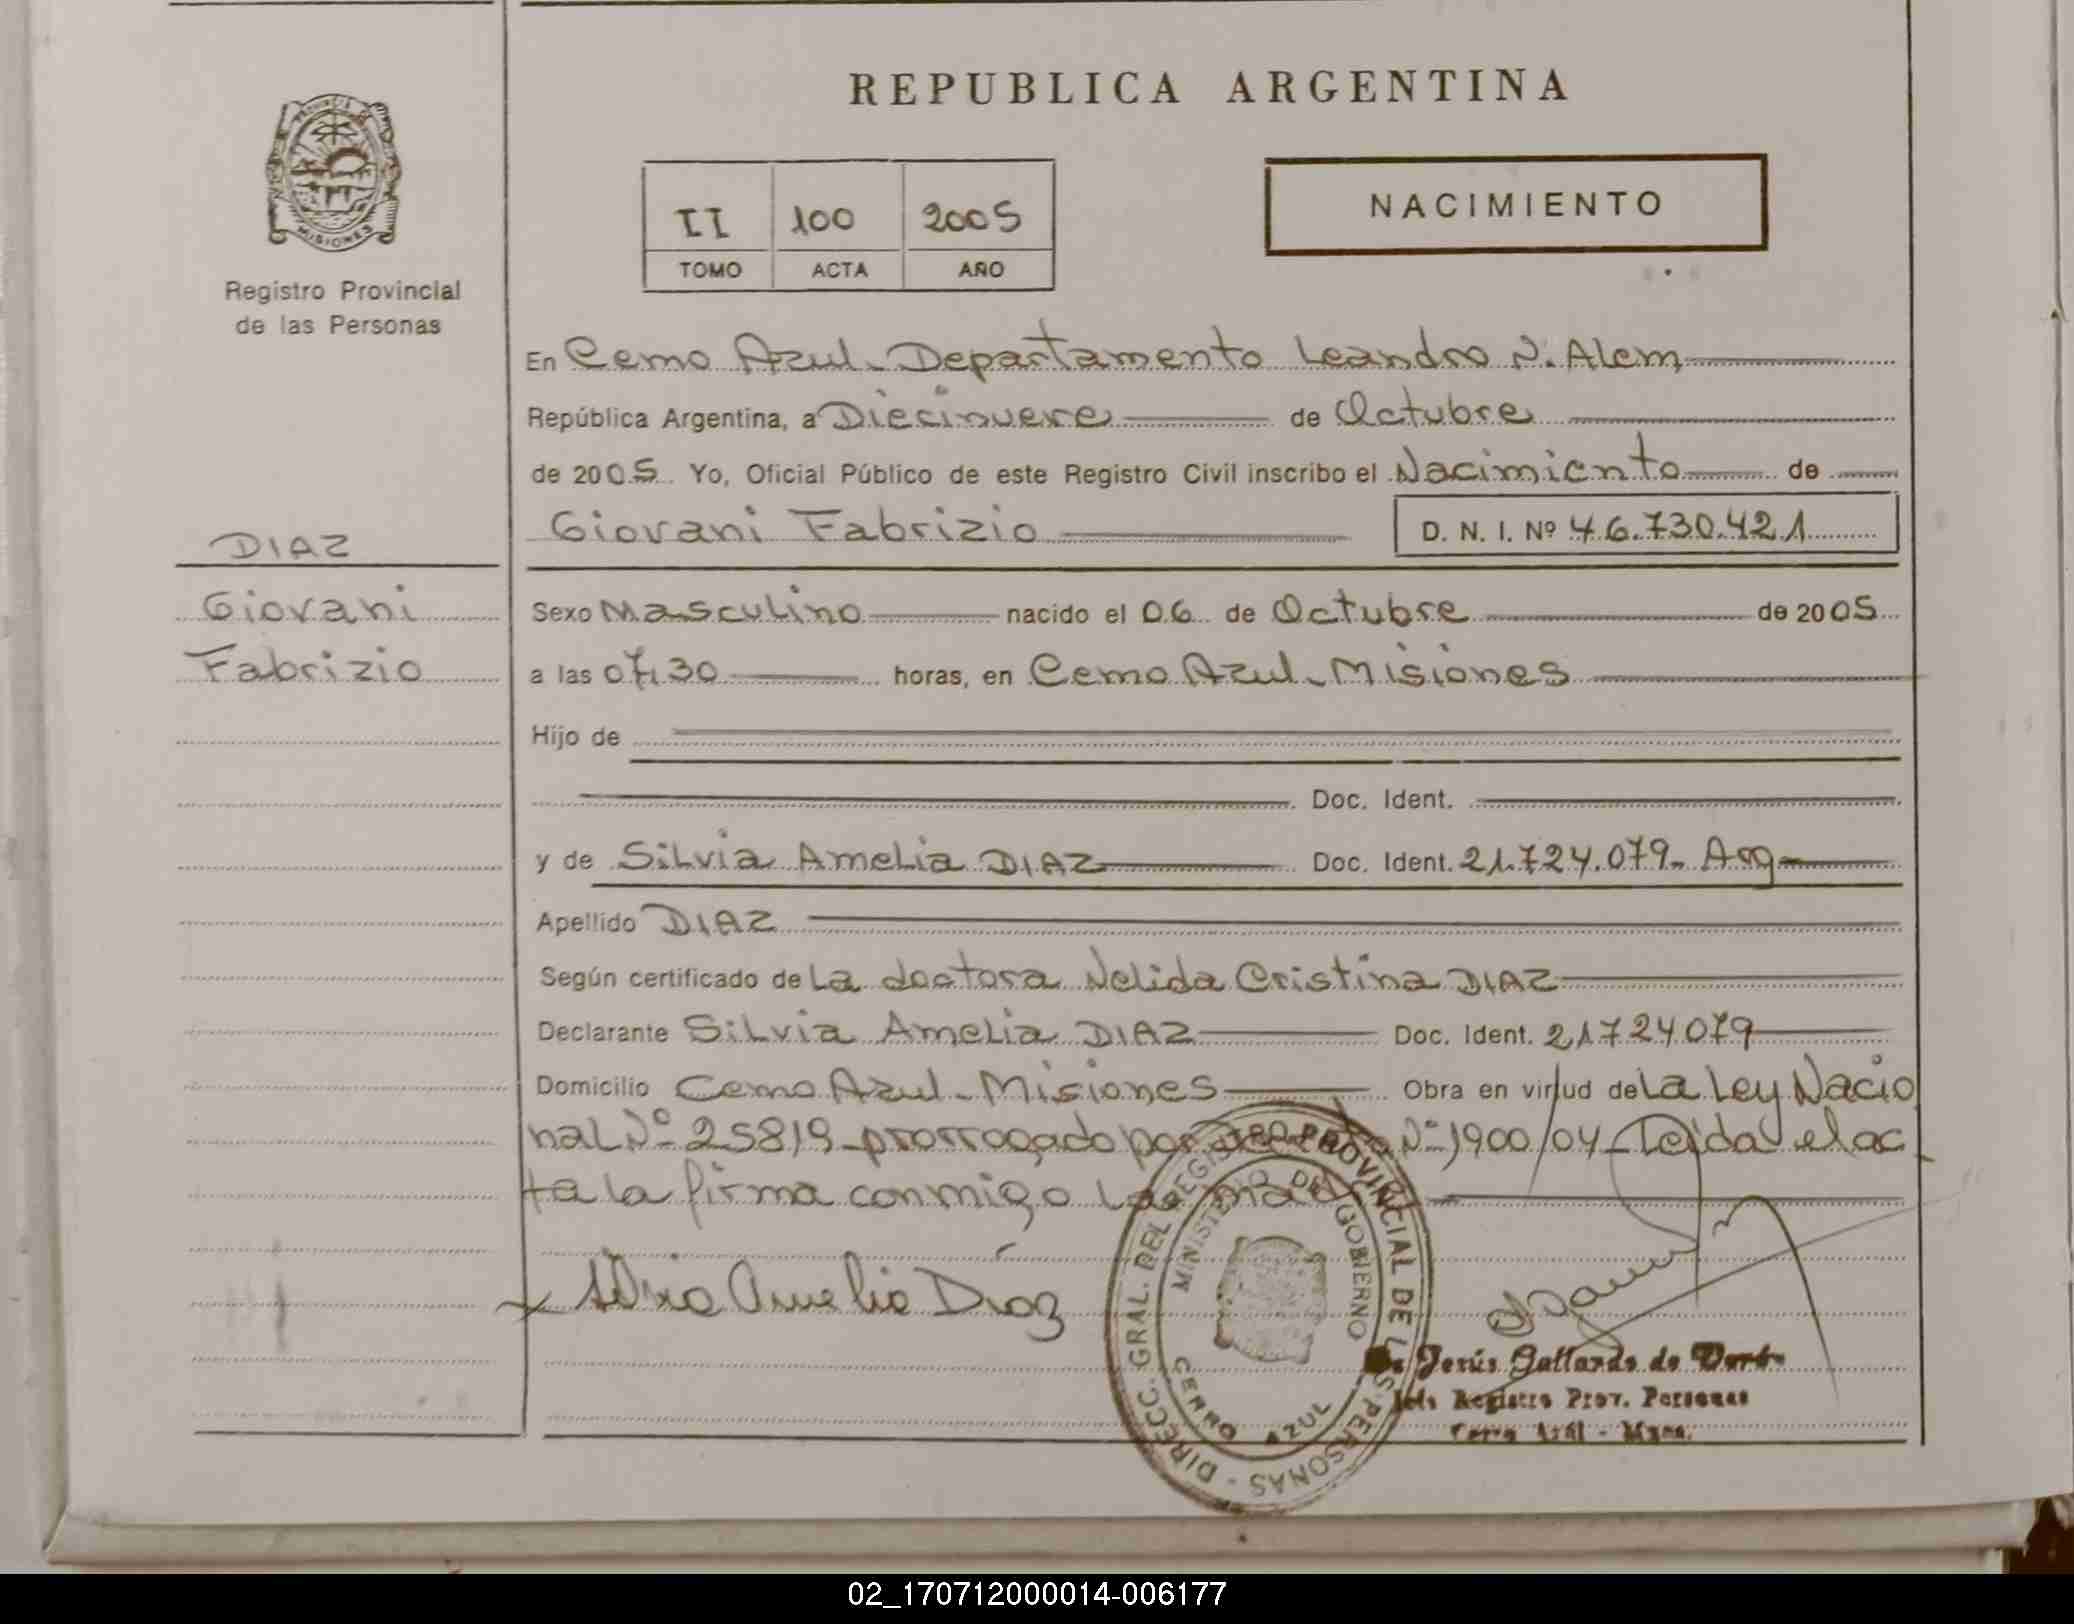 REPUBLICA ARGENTINA
PROVINCIA DE
MISIONES
Registro Provincial
de las Personas
II 100 2005
TOMO ACTA AÑO
NACIMIENTO
En Cerro Azul - Departamento Leandro N. Alem
República Argentina, a Diecinueve de Octubre
de 2005. Yo, Oficial Público de este Registro Civil inscribo el Nacimiento de
Giovani Fabrizio D. N. I. Nº 46.730.421
DIAZ
Giovani
Fabrizio
Sexo Masculino nacido el 06 de Octubre de 2005
a las 07,30 horas, en Cerro Azul - Misiones
Hijo de
Doc. Ident.
y de Silvia Amelia DIAZ Doc. Ident. 21.724.079- Arg-
Apellido DIAZ
Según certificado de La doctora Nelida Cristina DIAZ
Declarante Silvia Amelia DIAZ Doc. Ident. 21724079
Domicilio Cerro Azul - Misiones Obra en virtud de La Ley Nacio
nal Nº 25819 - prorrogado por Nº 1900/04 - Leida el ac
ta la firma conmigo La
Silvia Amelia Diaz
DIRECC. GRAL. DEL REGISTRO PROVINCIAL DE LAS PERSONAS -
MINISTERIO DE GOBIERNO
CERRO AZUL
Jesús Gallardo de
Jefe Registro Prov. Personas
Cerro Azul - Mnes.
02_170712000014-006177